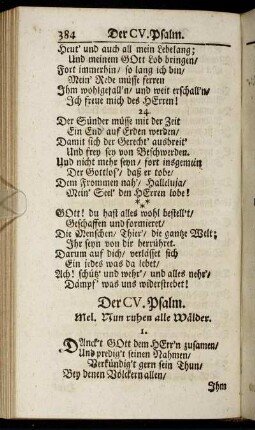 384 Der CV. Psalm.
Heut' und auch all mein Lebelang;
Und meinem GOtt Lob bringen/
Fort immerhin/ so lang ich bin/
Mein' Rede müsse ferren
Ihm wohlgefall'n/ und weit erschall'n/
Ich freue mich des HErren!
24.
Der Sünder müsse mit der Zeit
Ein End' auf Erden werden/
Damit sich der Gerecht' ausbreit'
Und frey sey von Beschwerden.
Und nicht mehr seyn/ fort insgemein
Der Gottlos'/ daß er tobe/
Dem Frommen nah'/ Halleluja/
Mein' Seel' den HErren lobe!
***
GOtt! du hast alles wohl bestell't/
Geschaffen und formieret/
Die Menschen/ Thier'/ die gantze Welt;
Ihr seyn von dir herrühret.
Darum auf dich/ verlässet sich
Ein jedes was da lebet/
Ach! schütz' und wehr'/ und alles nehr'/
Dämpf' was uns widerstrebet!
Der CV. Psalm.
Mel. Nun ruhen alle Wälder.
1.
DAnck't GOtt dem HErr'n zusamen/
Und predig't seinen Nahmen/
Verkündig't gern sein Thun/
Bey denen Völckern allen/
Ihm